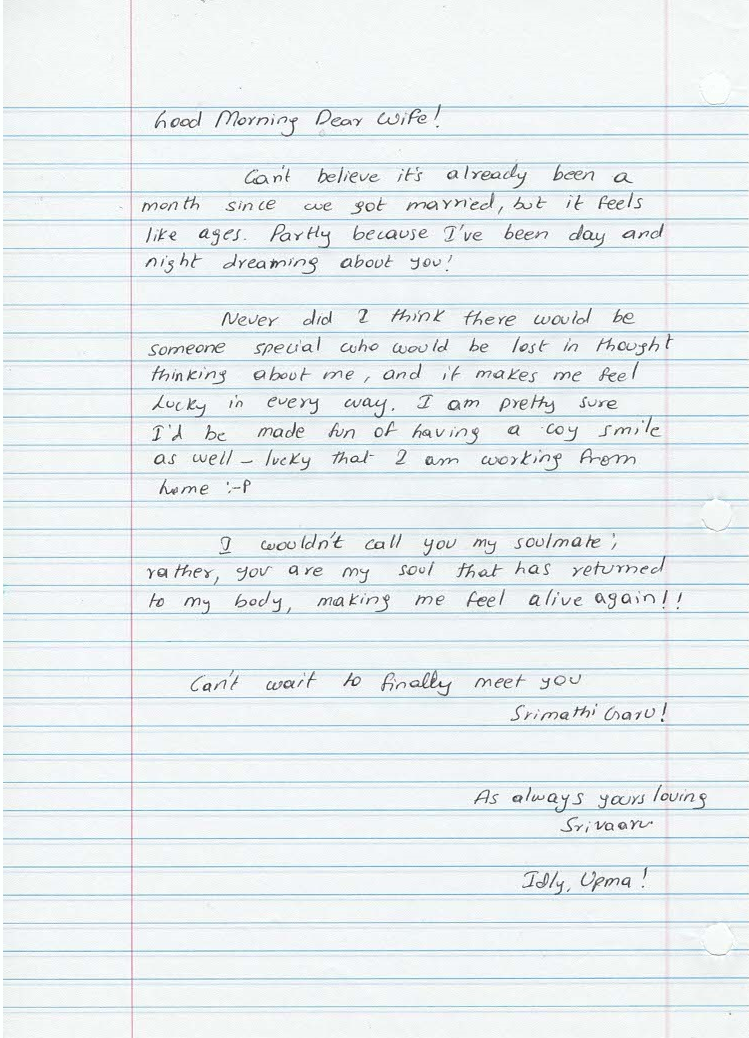 Good Morning Dear Wife!
Can't believe it's already been a
month since we got married, but it feels
like ages. Partly because I've been day and
night dreaming about you!
Never did I think there would be
someone special who would be lost in thought
thinking about me, and it makes me feel
Lucky in every way. I am pretty sure
I'd be made fun of having a coy smile
as well - lucky that I am working from
home :-P
I wouldn't call you my soulmate;
rather, you are my soul that has returned
to my body, making me feel alive again!!
Can't wait to finally meet you
Srimathi Garu!
As always yours loving
Srivaaru
Idly, Upma!